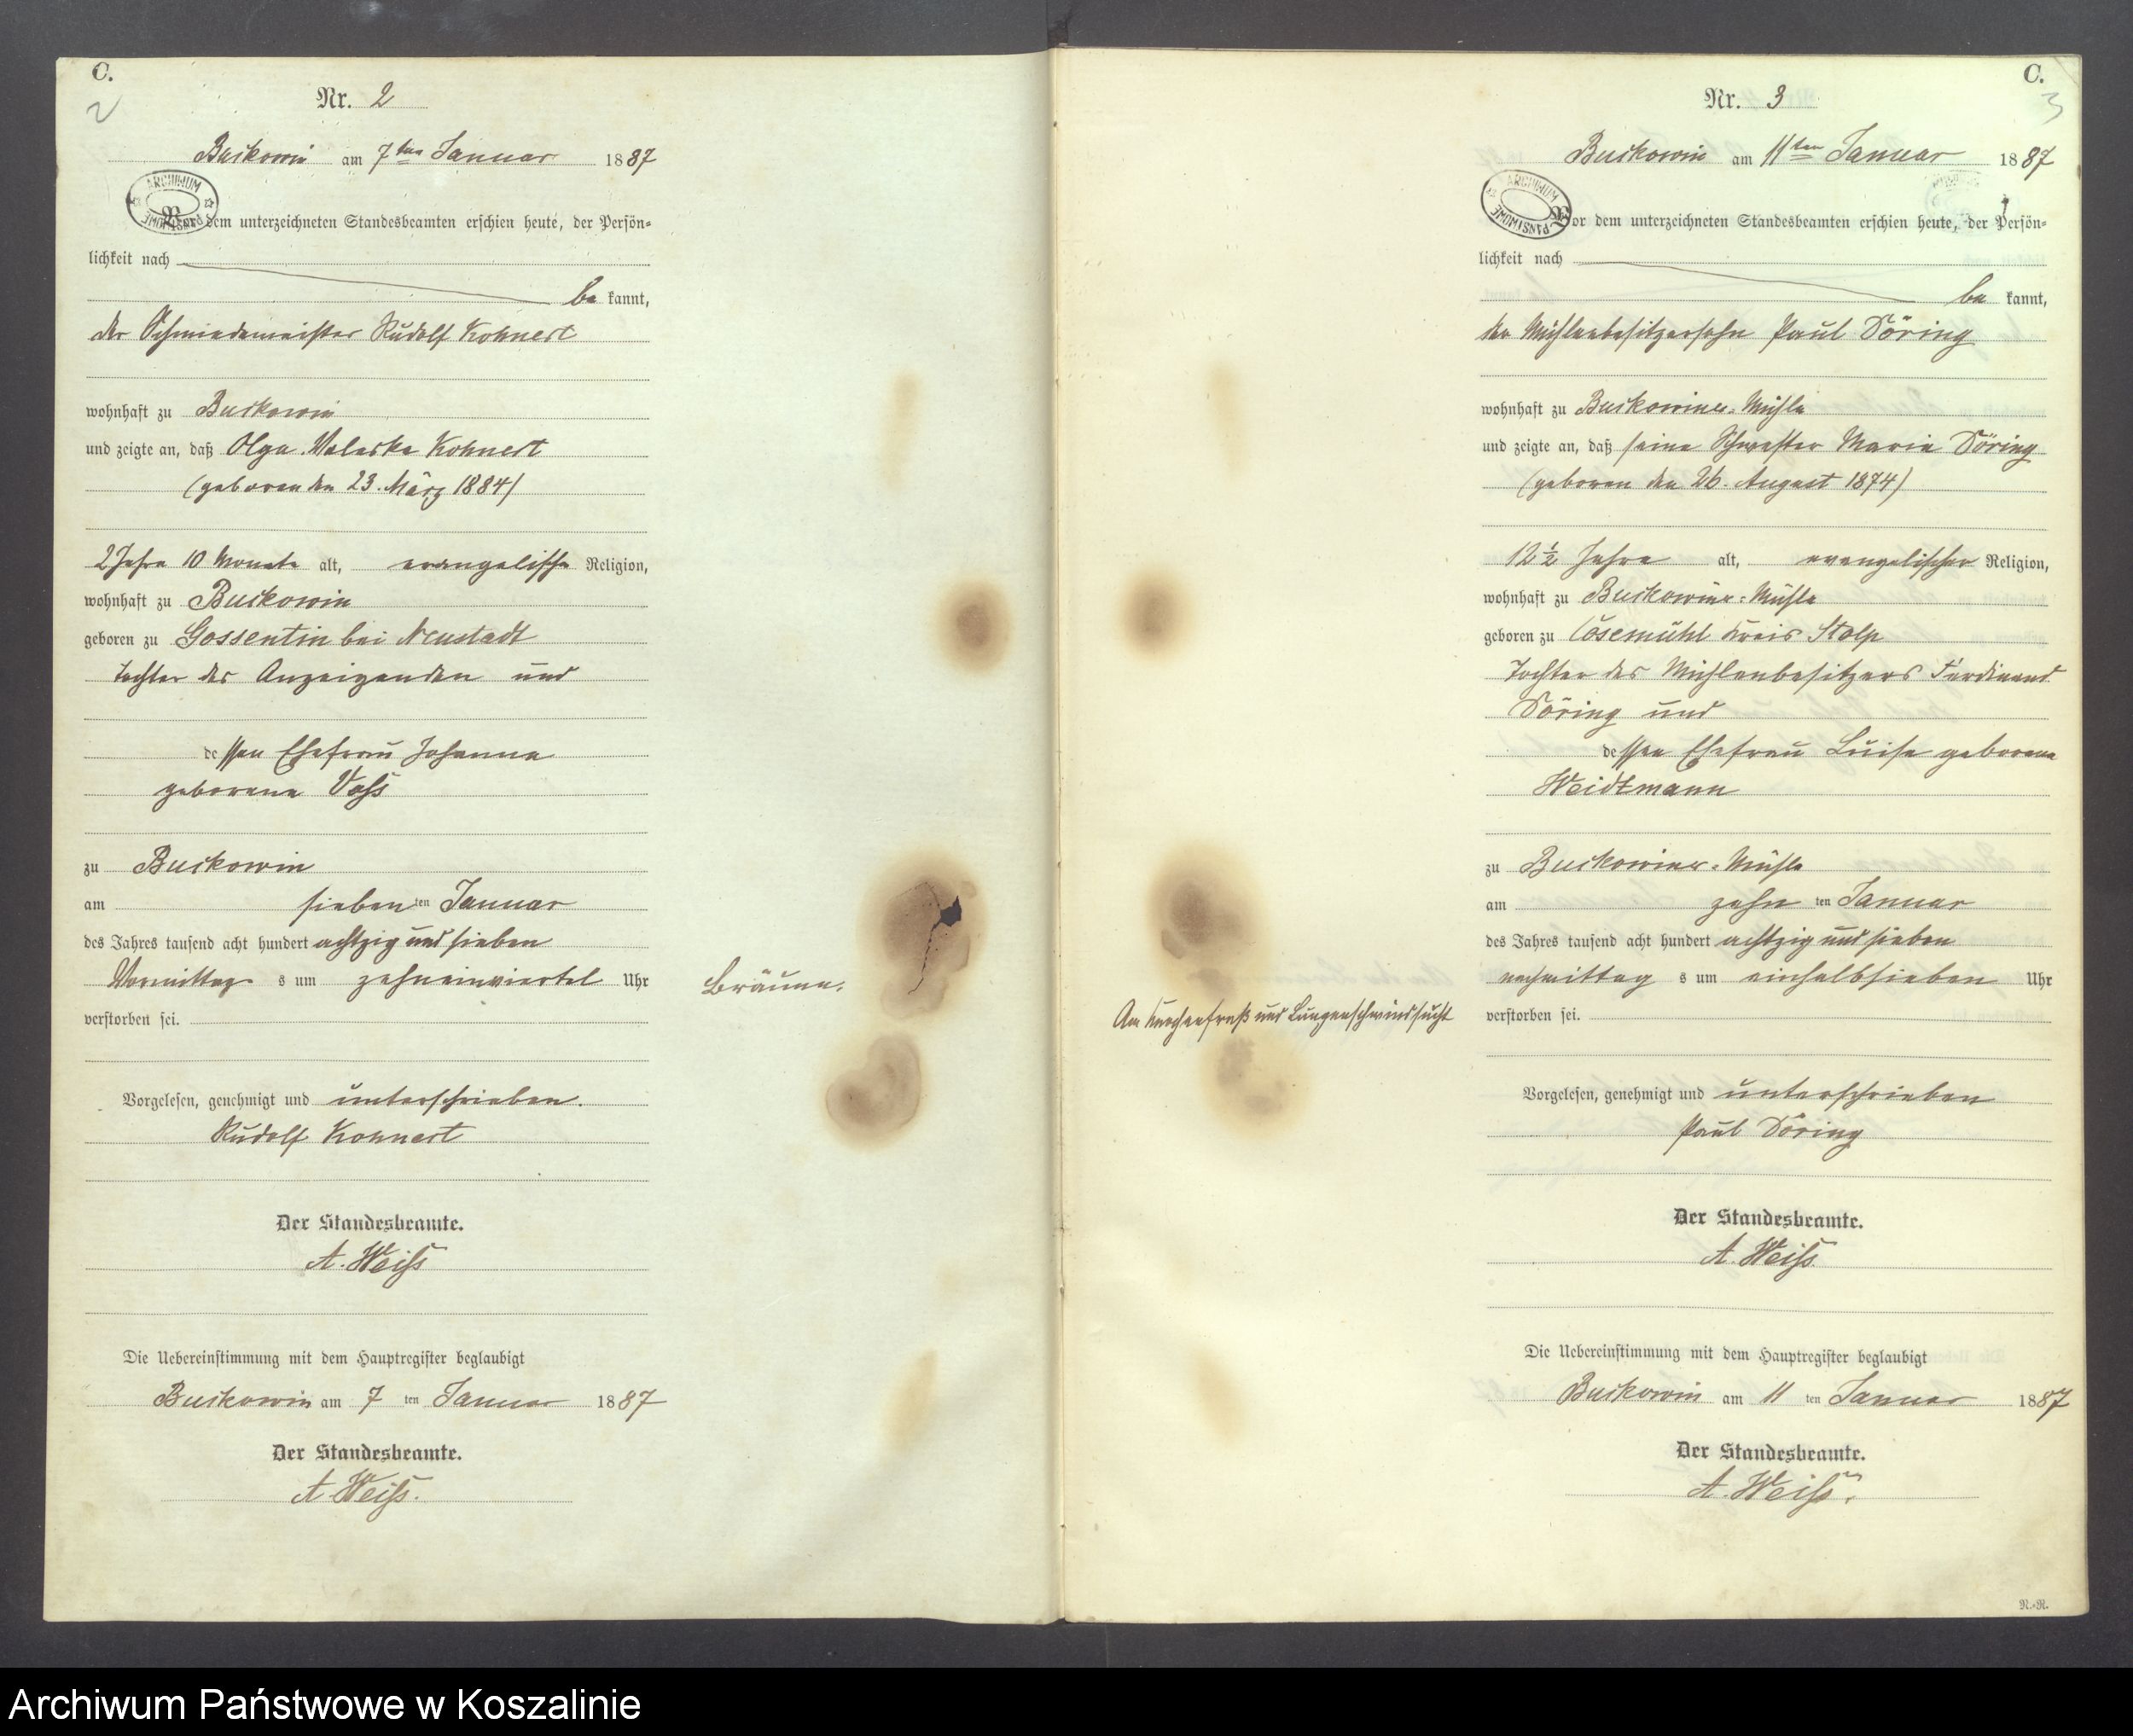 C.
2
Nr. 2
Buckowin am 7ten Januar 1887
ARCHIWUM PAŃSTWOWE
Vor dem unterzeichneten Standesbeamten erschien heute, der Persön=
lichkeit nach
be kannt,
der Schmiedemeister Rudolf Kohnert
wohnhaft zu Buckowin
und zeigte an, daß Olga Valeska Kohnert
(geboren den 23. März 1884)
2 Jahre 10 Monate alt, evangelische Religion,
wohnhaft zu Buckowin
geboren zu Gossentin bei Neustadt
Tochter des Anzeigenden und
dessen Ehefrau Johanna
geborene Voß
zu Buckowin
am siebenten Januar
des Jahres tausend acht hundert achtzig und sieben
Vormittags um zehneinviertel Uhr
verstorben sei.
Bräune.
Vorgelesen, genehmigt und unterschrieben.
Rudolf Kohnert
Der Standesbeamte.
A. Weiß
Die Uebereinstimmung mit dem Hauptregister beglaubigt
Buckowin am 7ten Januar 1887
Der Standesbeamte.
A. Weiß.
C.
3
Nr. 3
Buckowin am 11ten Januar 1887
ARCHIWUM PAŃSTWOWE
Vor dem unterzeichneten Standesbeamten erschien heute, der Persön=
lichkeit nach
be kannt,
der Mühlenbesitzersohn Paul Döring
wohnhaft zu Buckowiner-Mühle
und zeigte an, daß seine Schwester Maria Döring
(geboren den 26. August 1874)
12½ Jahre alt, evangelischer Religion,
wohnhaft zu Buckowiner-Mühle
geboren zu Cösemühl Kreis Stolp
Tochter des Mühlenbesitzers Ferdinand
Döring und
dessen Ehefrau Luise geborene
Weidtmann
zu Buckowiner-Mühle
am zehnten Januar
des Jahres tausend acht hundert achtzig und sieben
nachmittags um einhalbsieben Uhr
verstorben sei.
Am Knochenfraß und Lungenschwindsucht
Vorgelesen, genehmigt und unterschrieben
Paul Döring
Der Standesbeamte.
A. Weiß.
Die Uebereinstimmung mit dem Hauptregister beglaubigt
Buckowin am 11ten Januar 1887
Der Standesbeamte.
A. Weiß.
R.-R.
Archiwum Państwowe w Koszalinie